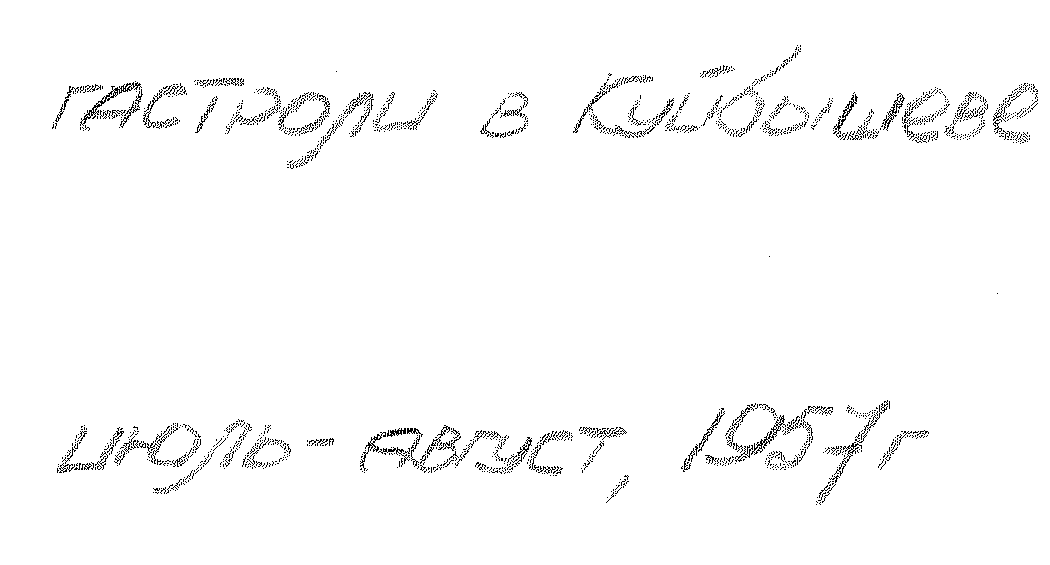 гастроли в Куйбышеве
июль-август, 1957г